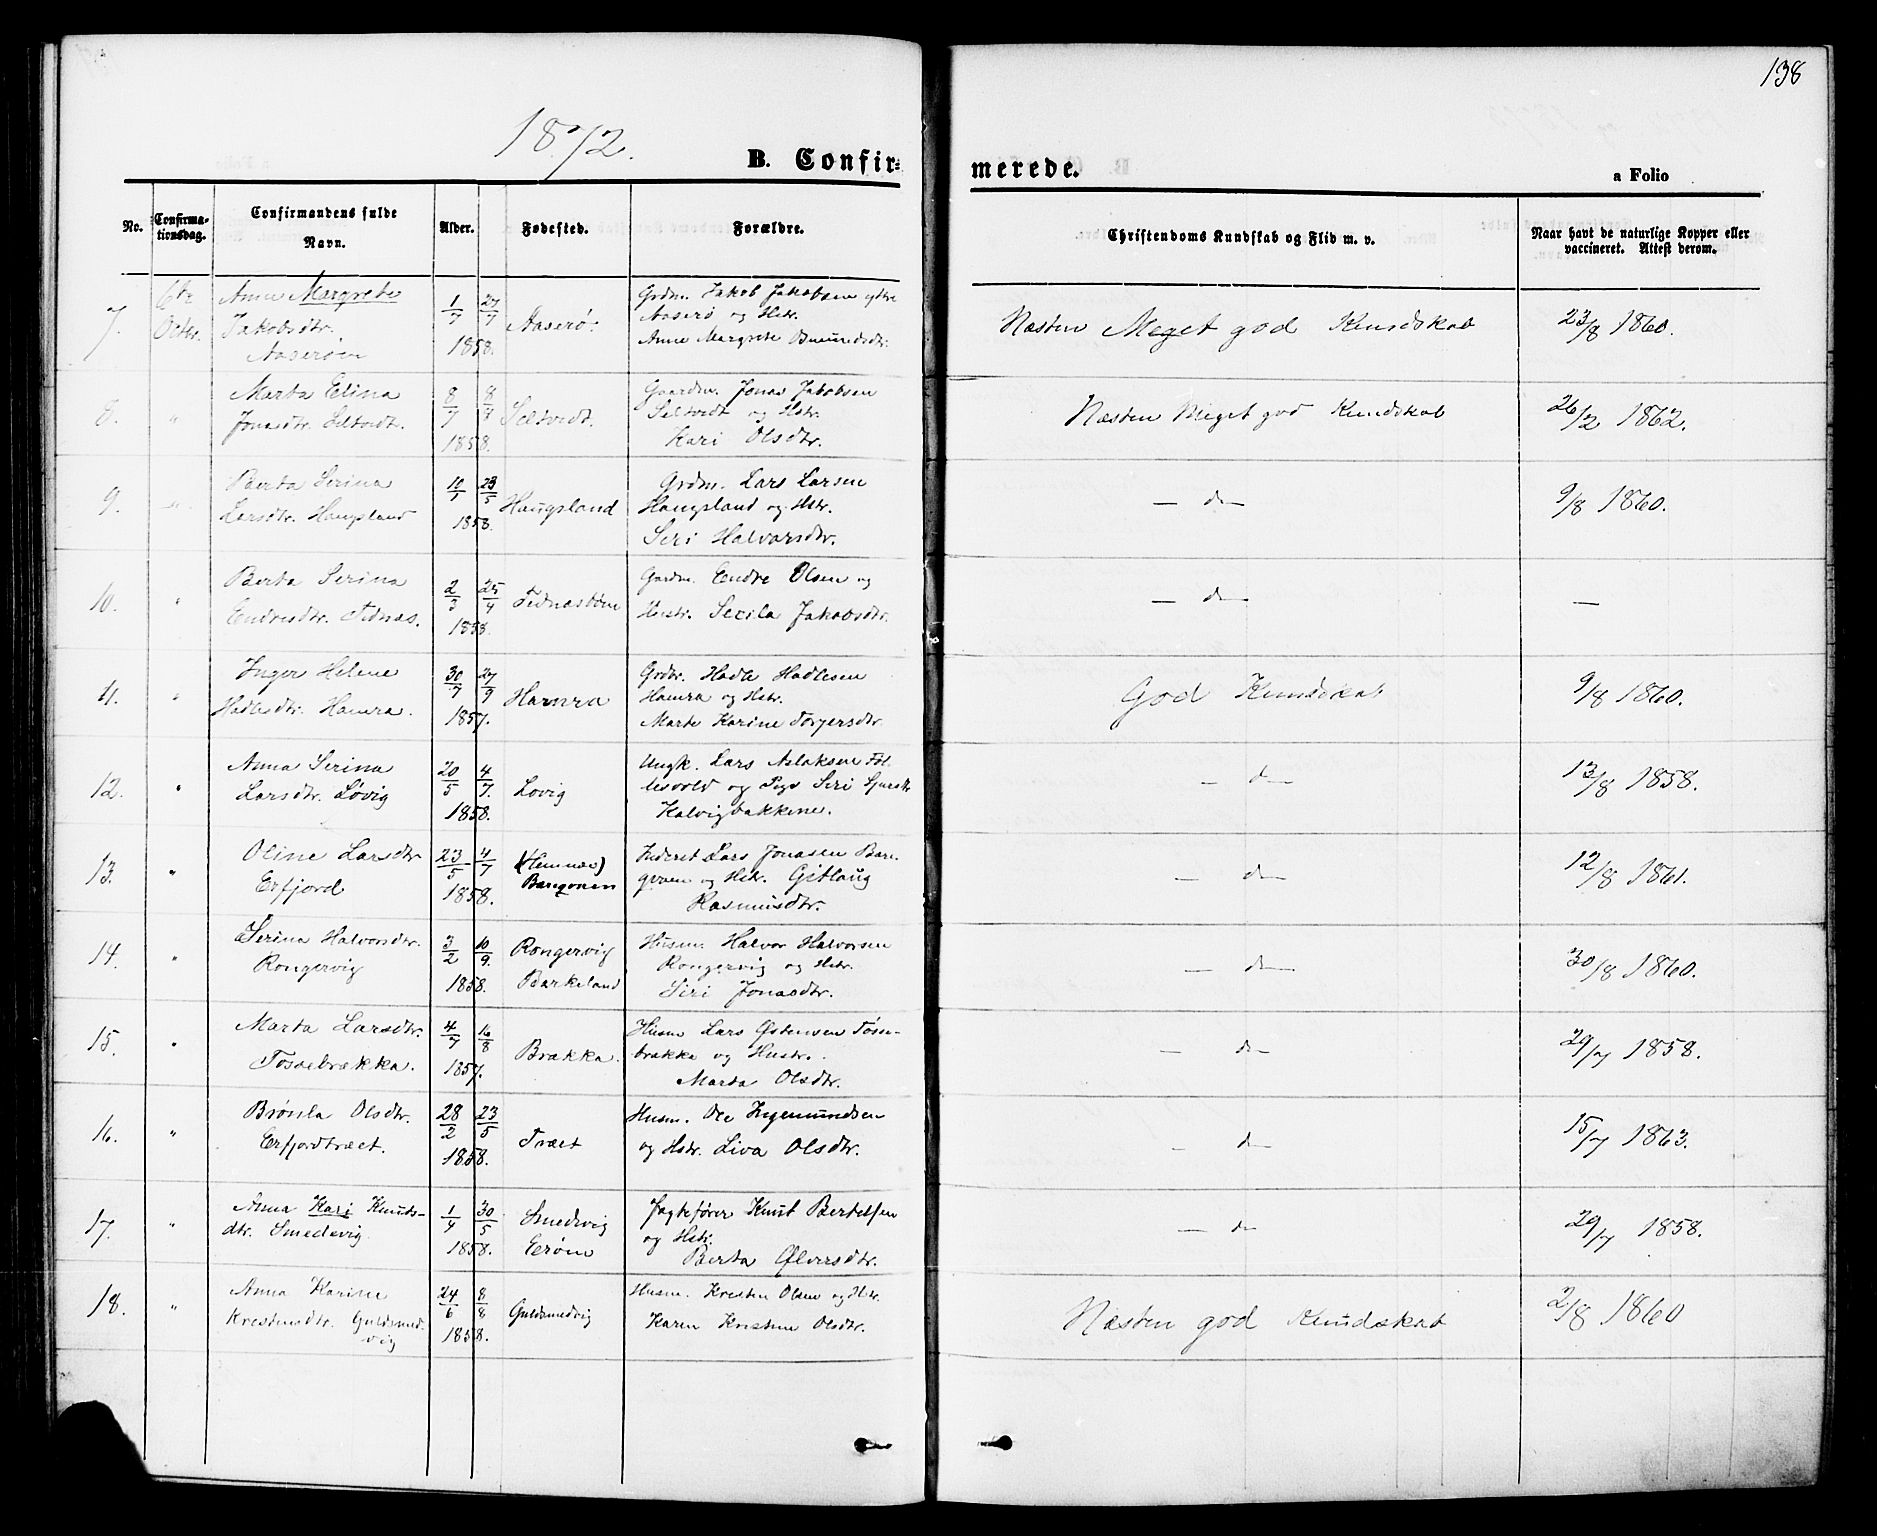 138
1872.
B. Confir=
merede.
a Folio
No.
Confirma-
tionsdag.
Confirmandens fulde
Navn.
Alder.
Fødested.
Forældre.
Christendoms Kundskab og Flid m. v.
Naar havt de naturlige Kopper eller
vaccineret. Attest derom.
7. 6te Anne Margrete 1/7 27/7 Grdm. Jakob Jakobsen ytre
Octbr. Jakobsdtr. 1858. Aaserø: Aaserø og Hstr. Næsten Meget god Kundskab 23/8 1860.
Aaserøen Anne Margrete
8. " Marta Elina 8/7 8/7 Selsvedt. Gaardm. Jonas Jakobsen
Jonasdtr. Selvedt. 1858. og Hstr. Næsten Meget god Kundskab 26/2 1862.
Kari Olsdtr.
9. " Berta Serina 10/1 23/5 Haugsland Grdm. Lars Larsen
Larsdtr. Haugsland 1858. Haugsland og Hstr. — d — 9/8 1860.
Siri Halvarsdtr.
10. " Berta Serina 2/3 25/4 Gardm. Endre Olsen og
Endresdtr. Tednæs. 1858. Hustr. Secila Jakobsdtr. — d — —
11. " Inger Helene 30/7 27/9 Hamra Hadle Hadlesen
Hadlesdtr. Hamra. 1857. Hamra og Hstr. God Kundskab 9/8 1860.
Marte Karine Torgersdtr.
12. " Anna Serina 20/5 4/7. Lovig Ungk. Lars Aslaksen
Larsdtr. Løvig 1858. og Pige Siri — d — 13/8 1858.
Kalvigbakkene.
13. " Oline Larsdtr 23/5 4/7 Inderst Lars Jonasen
Erfjord 1858. og Hstr. Gitlaug — d — 12/8 1861.
Rasmusdtr.
14. " Serina Halvorsdtr. 3/2 10/9. Rongervig Husm. Halvor Halvorsen
Rongervig 1858. Barkeland Rongervig og Hstr. — d — 30/8 1860.
Siri Jonasdtr.
15. " Marta Larsdtr. 4/7 16/8 Brække. Husm Lars Østensen Tøsse-
Tossebrækka. 1857. brække og Hustr. — d — 29/7 1858.
Marta Olsdtr.
16. " Brønla Olsdtr. 28/2 23/5 Træet Husm. Ole Ingemundsen
Erfjordtræet. 1858. og Hstr. Liva Olsdtr. d — 15/7 1863.
17. " Anna Kari Knuds- 1/4 30/5 Smedvig Jagtefører Knut Bertelsen
dtr. Smedevig. 1858. Eerøen og Hstr. — d — 29/7 1858.
Berta Ølversdtr.
18. " Anna Karine 24/6 8/8 Guldsmedvig Husm. Kristen Olsen og Hstr.
Krestensdtr. Guldsmed- 1858. Karen Kristine Olsdtr. Næsten god Kundskab 2/8 1860
vig